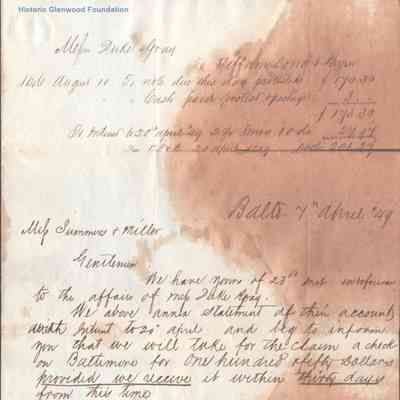 Historic Glenwood Foundation
Mess Duke & Gray
1846 August 10 To note due this day protested $ 170.30
" " Cash paid protest
$ 170.30
To Interest to 20 april '49
20 april
Balto 7th April '49
Mess Summers & Miller
Gentlemen
We have yours of 23d inst in reference
to the affairs of mess Duke & Gray.
We above annex statement of their account
with Intrest to 20 april and beg to inform
you that we will take for the claim a check
on Baltimore for One hundred & fifty Dollars
provided we receive it within thirty days
from this time